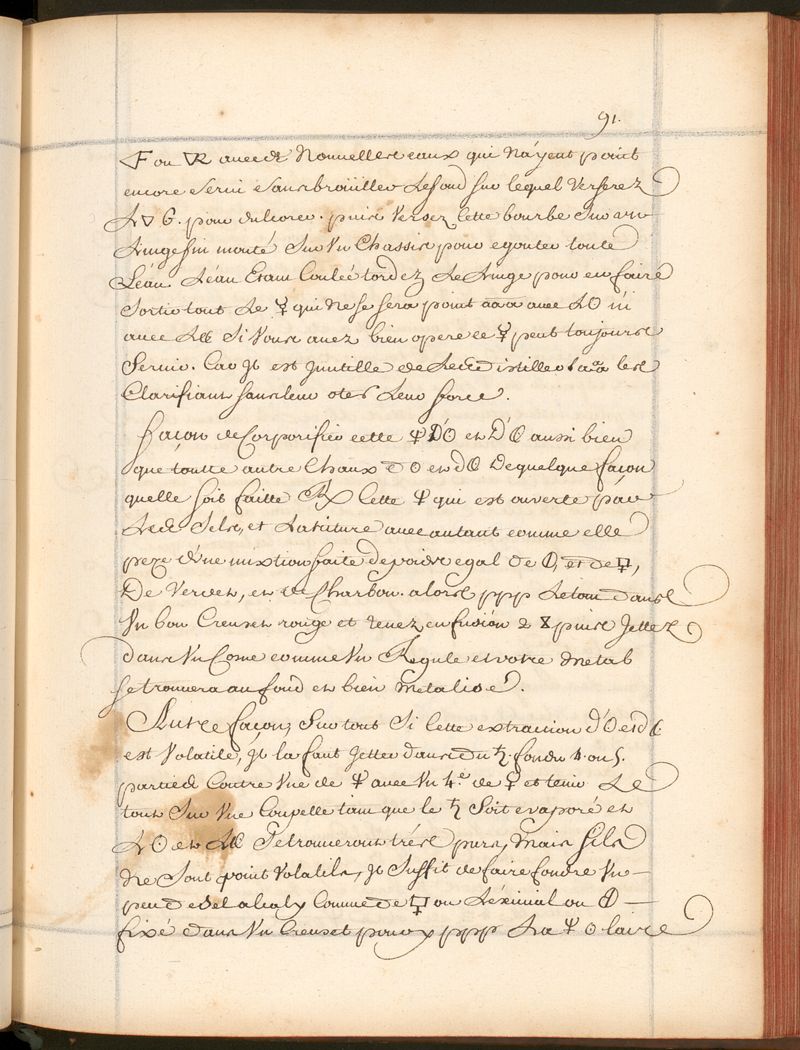 91.
ou avec de Nouvelles eaux qui n'ayent point
encore servi sans broüiller le fond sur lequel verserez
l'🜄 G. pour dulcorer. puis versez cette bourbe sur un
linge fin monté sur un chassis pour egouter toute
l'eau. l'eau Etant coulée tordez le linge pour en faire
sortir tout le ☿ qui ne se sera point aaa avec l'☉ ni
avec la ☾ si vous avez bien operé ce ☿ peut toujours
servir. Car jl est jnutille de le distiller les
Clarifiant sans leur oter leur force.
façon de Corporifier cette D'☉ et D'☾ aussi bien
que toutte autre Chaux d'☉ et d☾ de quelque façon
quelle soit faitte ℞ cette qui est ouverte par
les Sels, et la triture avec autant comme elle
peze d'une mixtion faite de poids egal de 🜕, et de
De Verdet, et de Charbon. alors ppp le tout dans
Un bon Creuset rouge et tenez en fusion 2 puis jettez
dans Un Cone comme Un Regule et votre metal
se trouvera au fond et bien metalisé.
Autre façon, Sur tout Si cette extraction d'☉ et d☾
est Volatile, jl la faut jetter dans du ♄ fondu 4. ou 5.
parties Contre Une de avec Un 4.e de ♀ et tenir Le
tout Sur Une Coupelle tam que le ♄ Soit evaporé et
l'☉ et la ☾ Se trouveront trés purs, Mais sils
Ne Sont point Volatils, jl Suffit de faire fondre Un
peu de Sel alcaly Comme de ou ou 🜕
fixé dans Un Creuset pour y ppp La ☉ laire